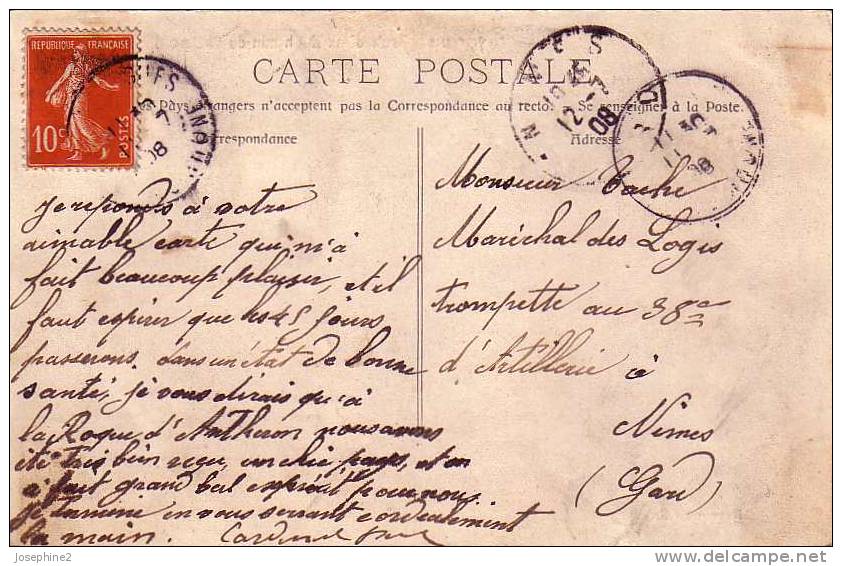 RÉPUBLIQUE FRANÇAISE
10c
POSTES
CARTE POSTALE
Les Pays étrangers n'acceptent pas la Correspondance au recto. Se renseigner à la Poste.
Correspondance
Adresse
NIMES
12
08
08
08
je reponds à votre
aimable carte qui m'à
fait beaucoup plaisir, et il
faut espirer que les 45 jours
passerons dans un état de bonne
santé, je vous dirais qu'à
la Roque d'Antheron nous avons
été très bien reçu, un chic pays, et on
a fait grand bal exprès pour nous
je termine en vous serrant cordealement
la main.
Monsieur Tache
Maréchal des Logis
trompette au 38e
d'Artillerie à
Nîmes
(Gard)
Josephine2
www.delcampe.net